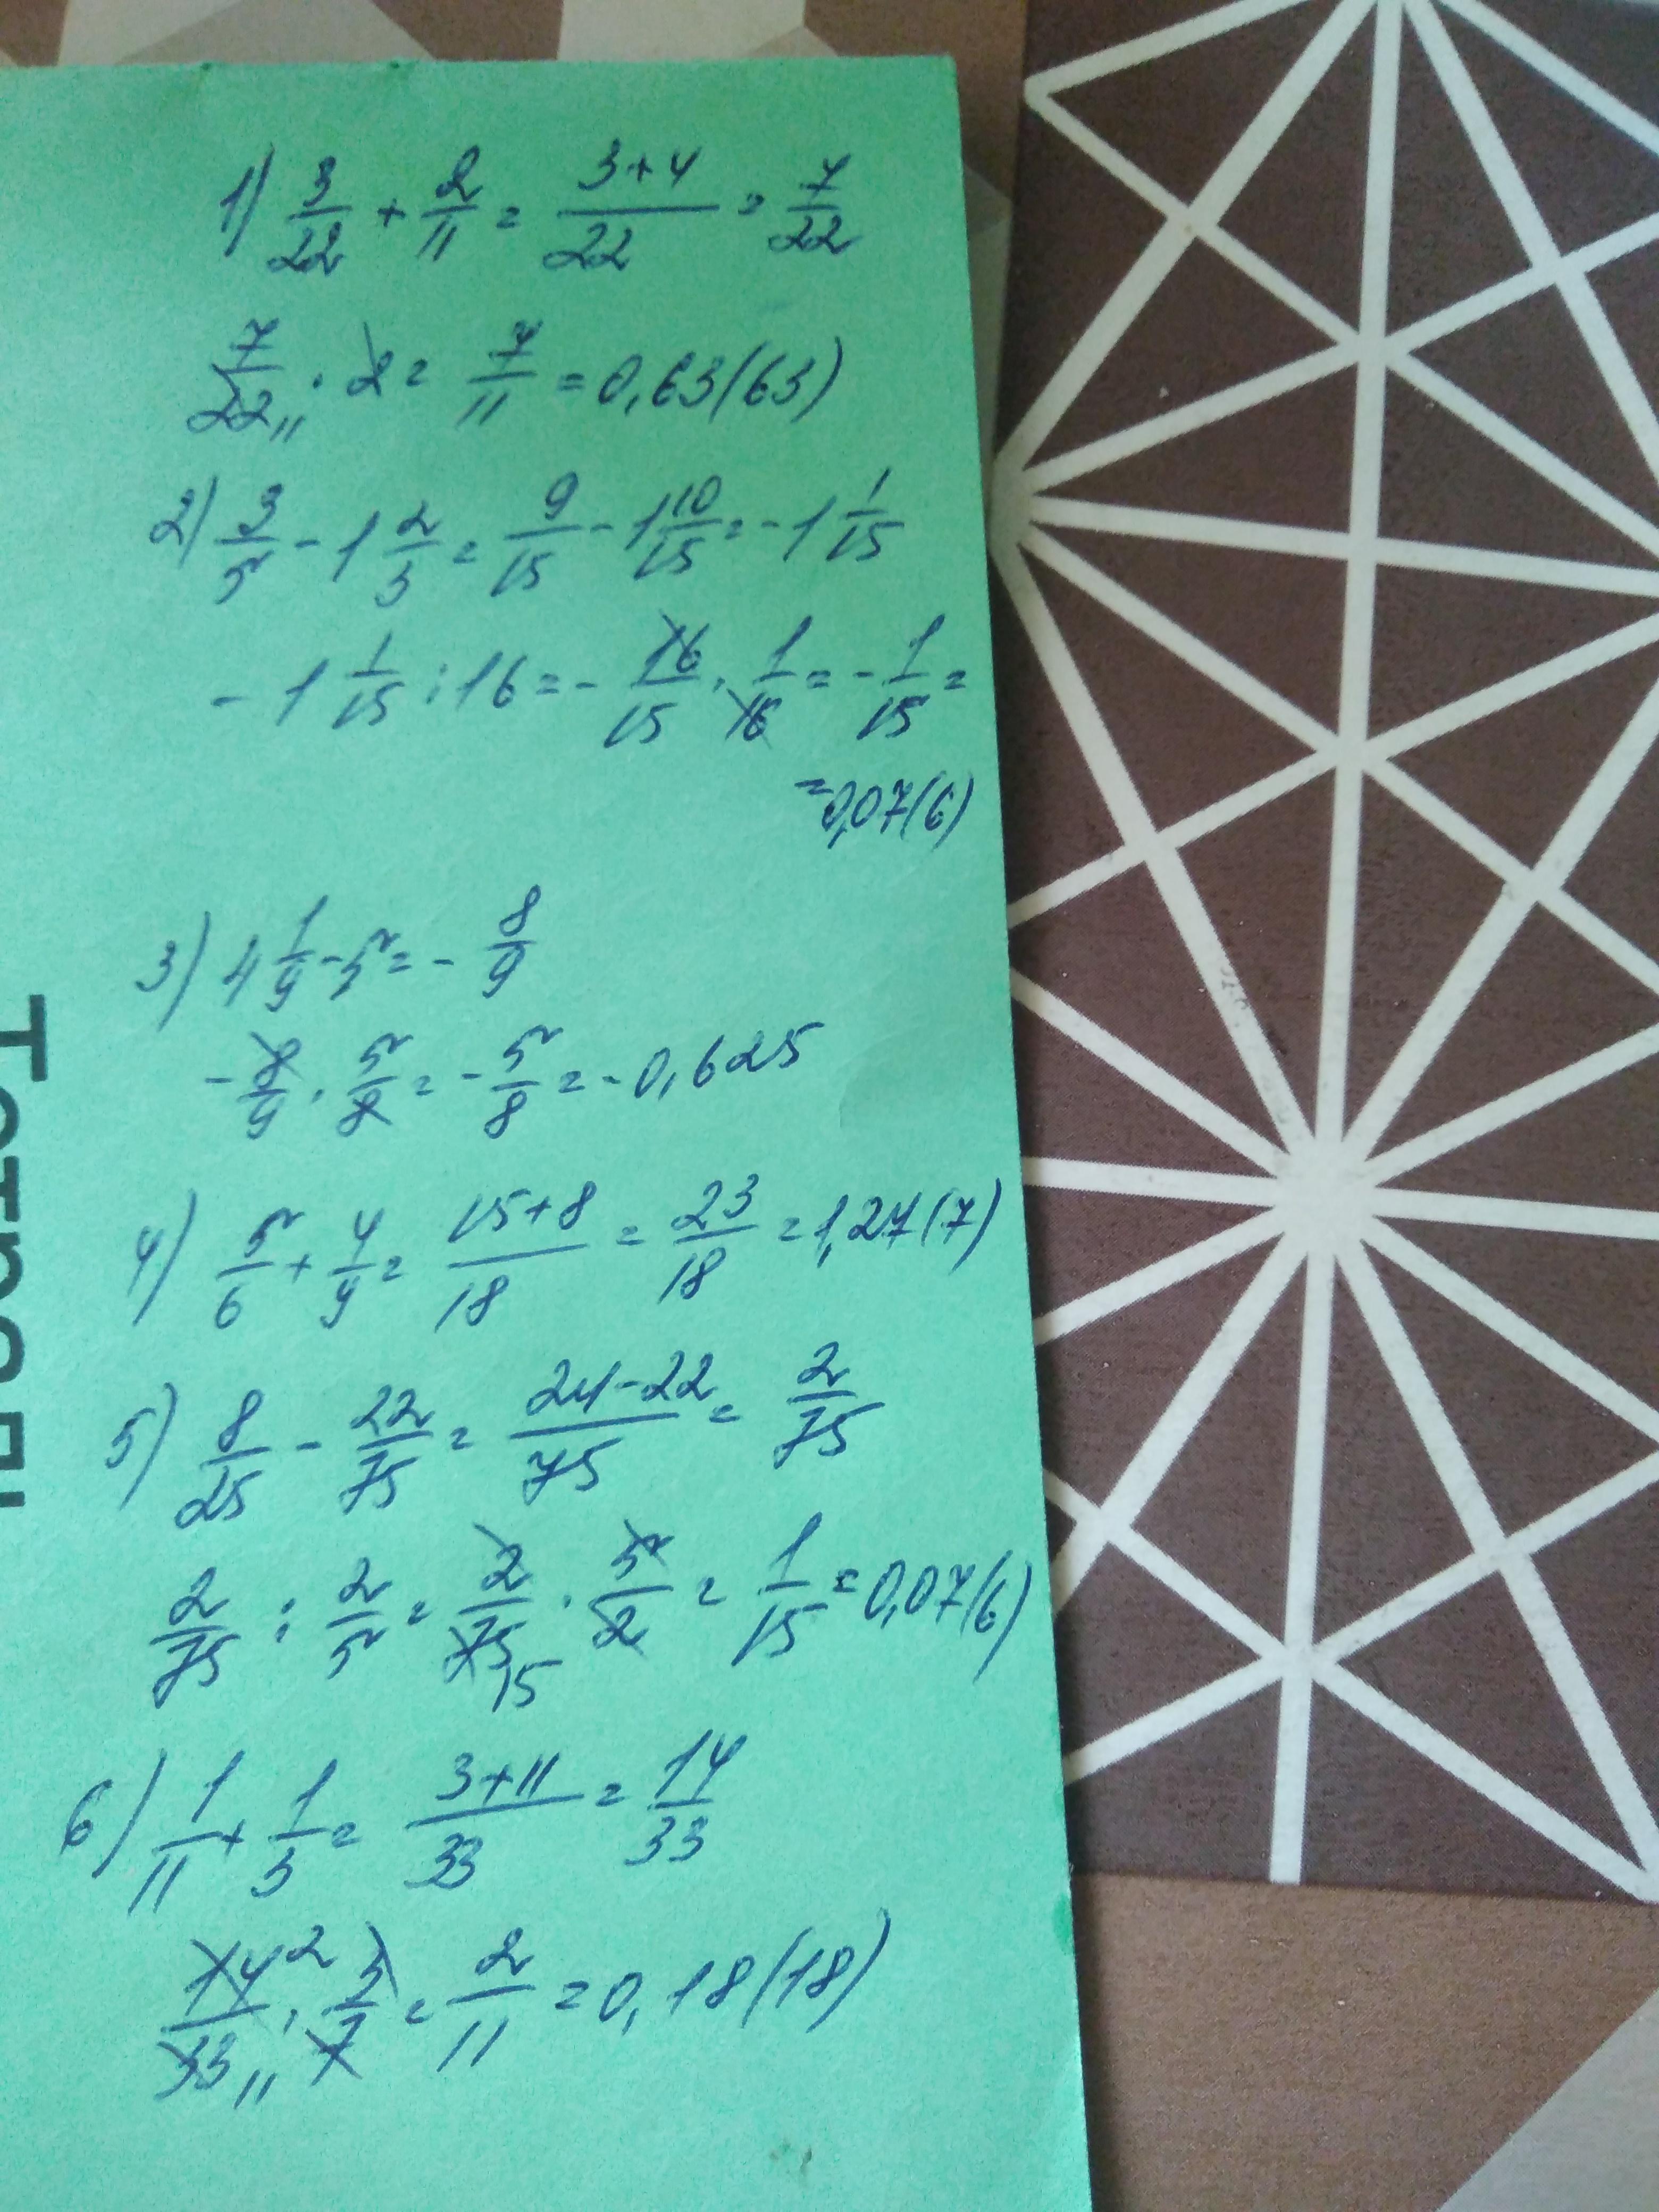 1) 3/22 + 2/11 = (3+4)/22 = 7/22
7/22 11 · 2 = 7/11 = 0,63(63)
2) 3/5 - 1 2/3 = 9/15 - 1 10/15 = -1 1/15
- 1 1/15 : 16 = - 16/15 · 1/16 = - 1/15 =
= 0,07(6)
3) 4 1/9 - 5 = - 8/9
- 8/9 · 5/8 = - 5/8 = - 0,625
4) 5/6 + 4/9 = (15+8)/18 = 23/18 = 1,27(7)
5) 8/25 - 22/75 = (24-22)/75 = 2/75
2/75 : 2/5 = 2/75 15 · 5/2 = 1/15 = 0,07(6)
6) 1/11 + 1/3 = (3+11)/33 = 14/33
14 2/33 11 · 3/7 = 2/11 = 0,18(18)